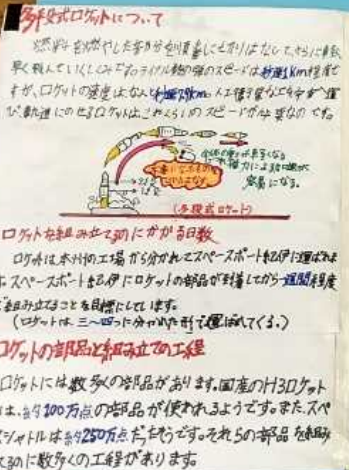 多段式ロケットについて
燃料を燃やした部分を順番に切りはなして、さらに
早く飛んでいくしくみです。ライフル銃の弾のスピードは秒速1km程度
ですが、ロケットの速度はなんと秒速7.9km。人工衛星などを宇宙へ運
び、軌道にのせるロケットはこれくらいのスピードが必要なのです。
全体の重さが
容易になる。
(多段式ロケット)
ロケットを組み立てるのにかかる日数
ロケットは本州の工場から分かれてスペースポート紀伊に運ばれま
す。スペースポート紀伊にロケットの部品が到着してから一週間程度
で組み立てることを目標にしています。
(ロケットは、三〜四つに分かれた形で運ばれてくる。)
ロケットの部品と組み立ての工程
ロケットには数多くの部品があります。国産のH3ロケット
は、約100万点の部品が使われるようです。また、スペ
ースシャトルは約250万点だったそうです。それらの部品を組み
立てるのに数多くの工程があります。